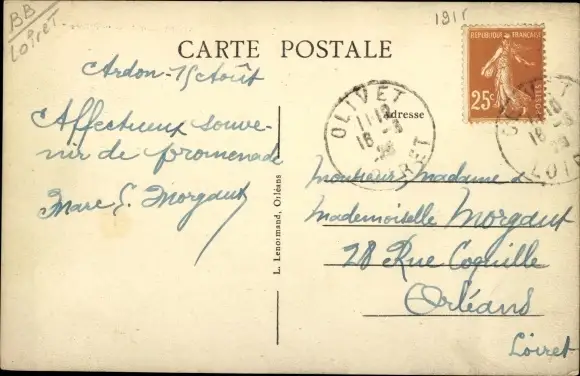 BB
Loiret
1915
CARTE POSTALE
Ardon - 15 Août
Affectueux souve-
nir de promenade
Marc S. Morgaut
L. Lenormand, Orléans
Adresse
REPUBLIQUE FRANÇAISE
25c
POSTES
OLIVET
LOIRET
OLIVET
11-10
16 -8
LOIRET
Monsieur, Madame &
Mademoiselle Morgaut
28 Rue Coquille
Orléans
Loiret